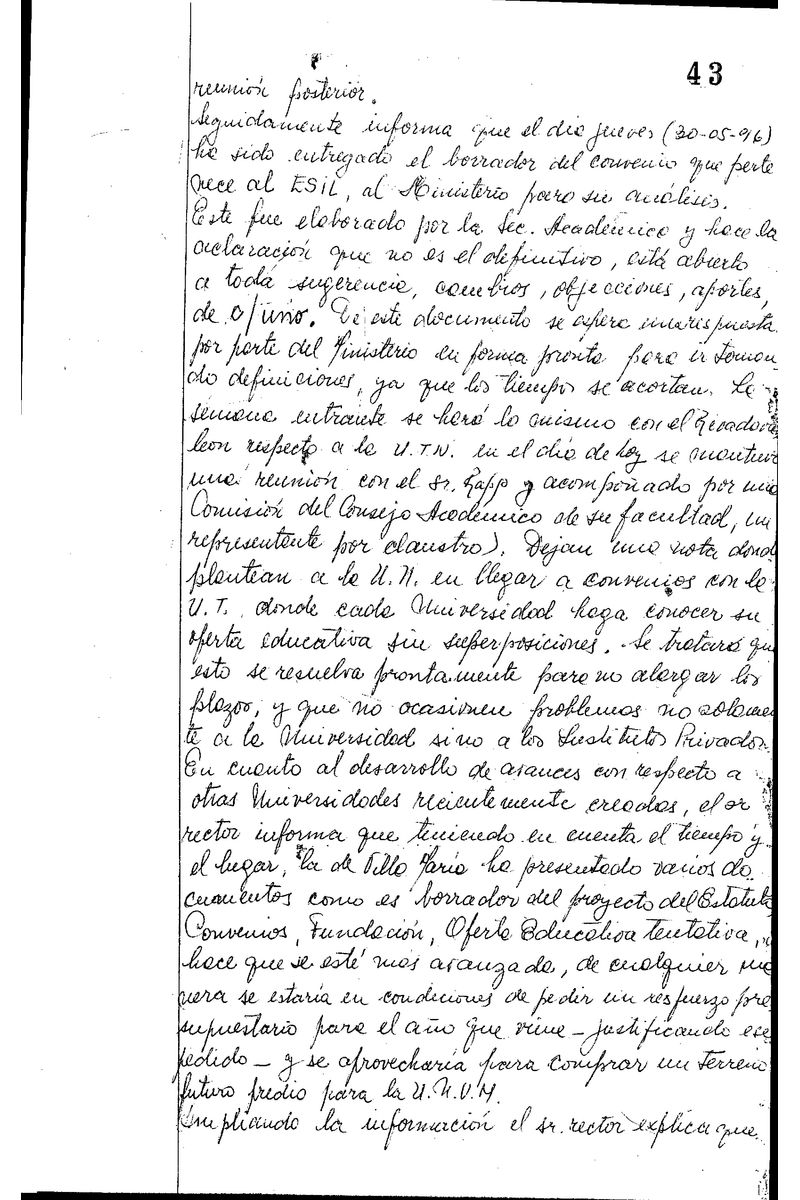 43
reunión posterior.
Seguidamente informa que el día jueves (30-05-96)
ha sido entregado el borrador del convenio que perte
nece al ESIL, al Ministerio para su análisis.
Este fue elaborado por la Sec. Académica y hace la
aclaración que no es el definitivo, está abierto
a toda sugerencia, cambios, objecciones, aportes,
de c/uno. De este documento se espera una respuesta
por parte del Ministerio en forma pronta para ir toman
do definiciones, ya que los tiempos se acortan. La
semana entrante se hará lo mismo con el
con respecto a la U.T.N. en el día de hoy se mantuvo
una reunión con el Sr. Rapp y acompañado por una
Comisión del Consejo Académico de su facultad, un
representante por claustro). Dejan una nota dond
plantean a la U.N. en llegar a convenios con la
U.T. donde cada Universidad haga conocer su
oferta educativa sin superposiciones. Se tratará que
esto se resuelva prontamente para no alargar los
plazos, y que no ocasionen problemas no solamen
te a la Universidad sino a los Institutos Privados.
En cuanto al desarrollo de avances con respecto a
otras Universidades recientemente creadas, el sr
rector informa que teniendo en cuenta el tiempo y
el lugar, la de Villa María ha presentado varios do
cumentos como es borrador del proyecto del Estatuto,
Convenios, Fundación, Oferta Educativa tentativa,
hace que se esté más avanzada, de cualquier ma
nera se estaría en condiciones de pedir un refuerzo pre
supuestario para el año que viene - justificando ese
pedido - y se aprovecharía para comprar un terreno
futuro predio para la U.N.V.M.
Ampliando la información el sr. rector explica que